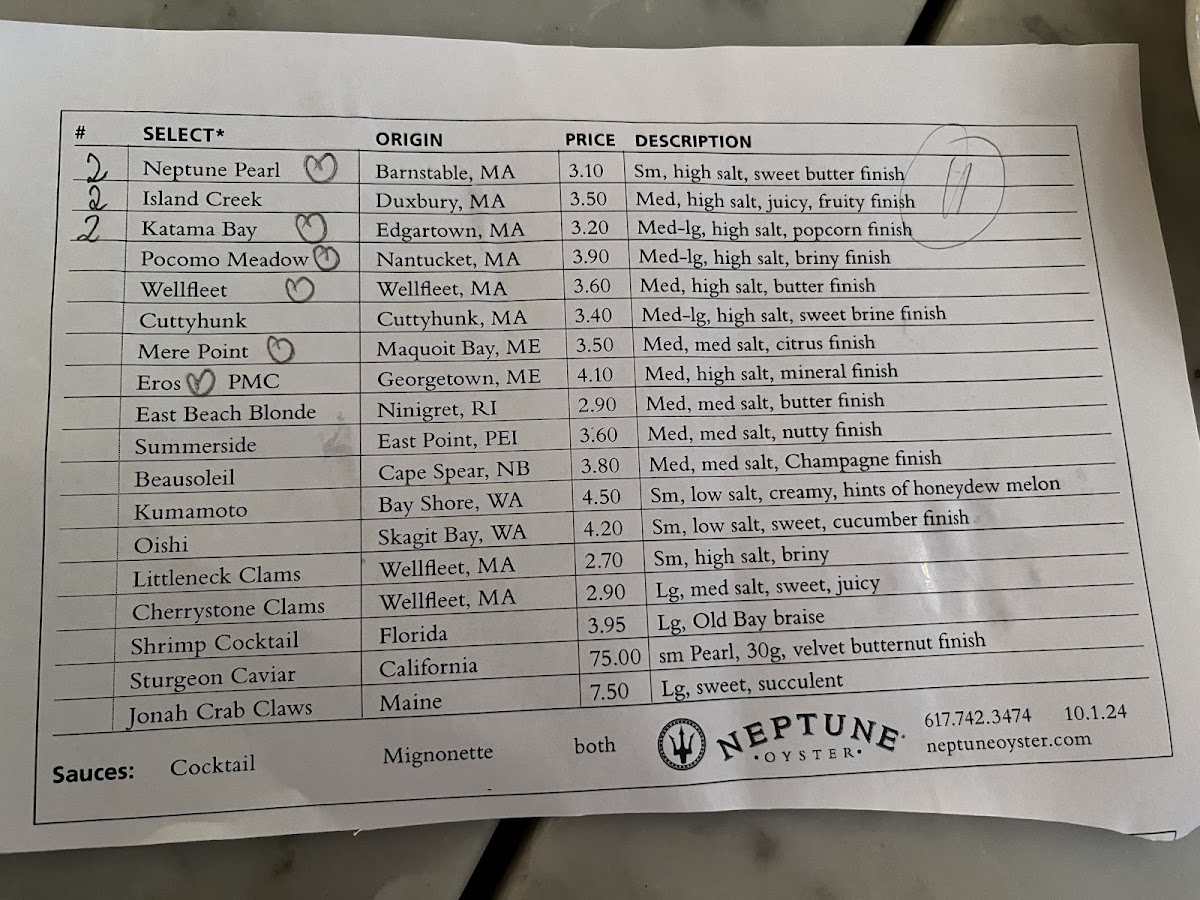 # SELECT* ORIGIN PRICE DESCRIPTION
2 Neptune Pearl Barnstable, MA 3.10 Sm, high salt, sweet butter finish
2 Island Creek Duxbury, MA 3.50 Med, high salt, juicy, fruity finish
2 Katama Bay Edgartown, MA 3.20 Med-lg, high salt, popcorn finish
Pocomo Meadow Nantucket, MA 3.90 Med-lg, high salt, briny finish
Wellfleet Wellfleet, MA 3.60 Med, high salt, butter finish
Cuttyhunk Cuttyhunk, MA 3.40 Med-lg, high salt, sweet brine finish
Mere Point Maquoit Bay, ME 3.50 Med, med salt, citrus finish
Eros PMC Georgetown, ME 4.10 Med, high salt, mineral finish
East Beach Blonde Ninigret, RI 2.90 Med, med salt, butter finish
Summerside East Point, PEI 3.60 Med, med salt, nutty finish
Beausoleil Cape Spear, NB 3.80 Med, med salt, Champagne finish
Kumamoto Bay Shore, WA 4.50 Sm, low salt, creamy, hints of honeydew melon
Oishi Skagit Bay, WA 4.20 Sm, low salt, sweet, cucumber finish
Littleneck Clams Wellfleet, MA 2.70 Sm, high salt, briny
Cherrystone Clams Wellfleet, MA 2.90 Lg, med salt, sweet, juicy
Shrimp Cocktail Florida 3.95 Lg, Old Bay braise
Sturgeon Caviar California 75.00 sm Pearl, 30g, velvet butternut finish
Jonah Crab Claws Maine 7.50 Lg, sweet, succulent
Sauces: Cocktail Mignonette both
NEPTUNE
•OYSTER•
617.742.3474 10.1.24
neptuneoyster.com